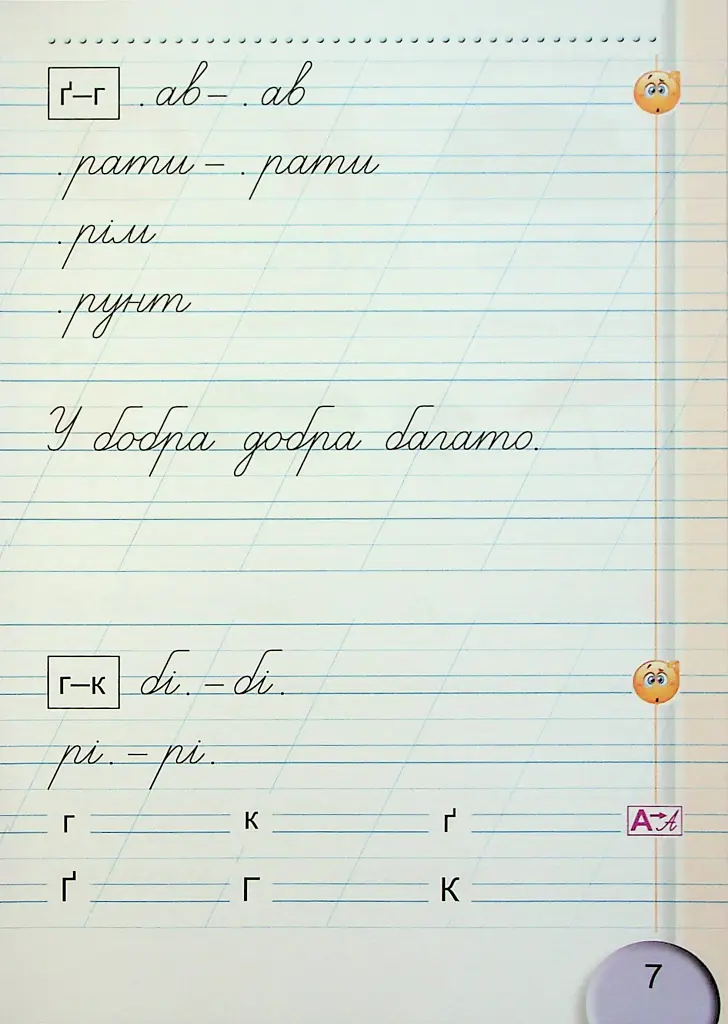 ґ–г .ав – .ав
.рати – .рати
.рім
.рунт
У бобра добра багато.
г–к бі. – бі.
рі. – рі.
г к ґ А→А
Ґ Г К
7